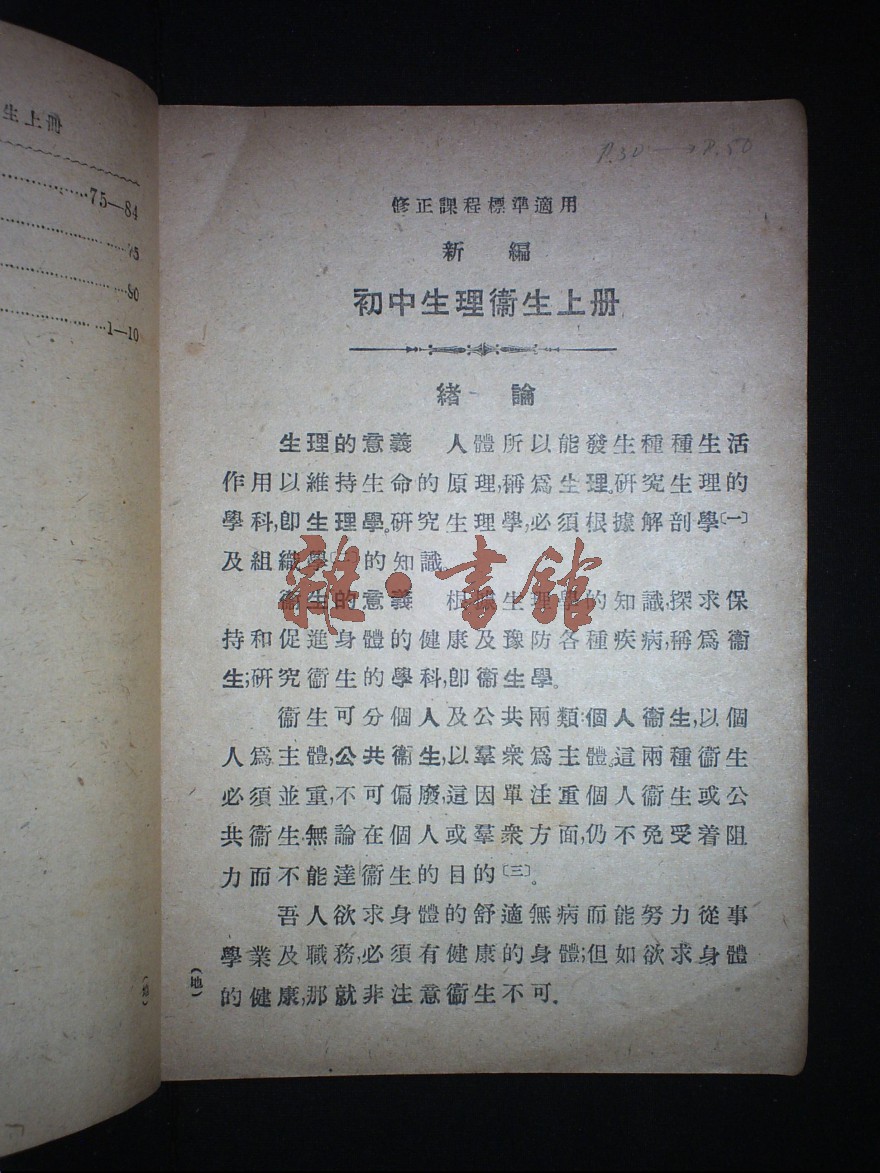 上生
75—84
75
80
1—10
P.30→P.50
修正課程標準適用
新編
初中生理衞生上册
緒論
生理的意義 人體所以能發生種種生活
作用以維持生命的原理,稱爲生理。研究生理的
學科,卽生理學。研究生理學,必須根據解剖學〔一〕
及組織學〔二〕的知識。
衞生的意義 根據生理學的知識,探求保
持和促進身體的健康及豫防各種疾病,稱爲衞
生;研究衞生的學科,卽衞生學。
衞生可分個人及公共兩類:個人衞生,以個
人爲主體,公共衞生,以羣衆爲主體。這兩種衞生
必須並重,不可偏廢,這因單注重個人衞生或公
共衞生,無論在個人或羣衆方面,仍不免受着阻
力而不能達衞生的目的〔三〕。
吾人欲求身體的舒適無病而能努力從事
學業及職務,必須有健康的身體;但如欲求身體
的健康,那就非注意衞生不可。
(地)
雜·書館